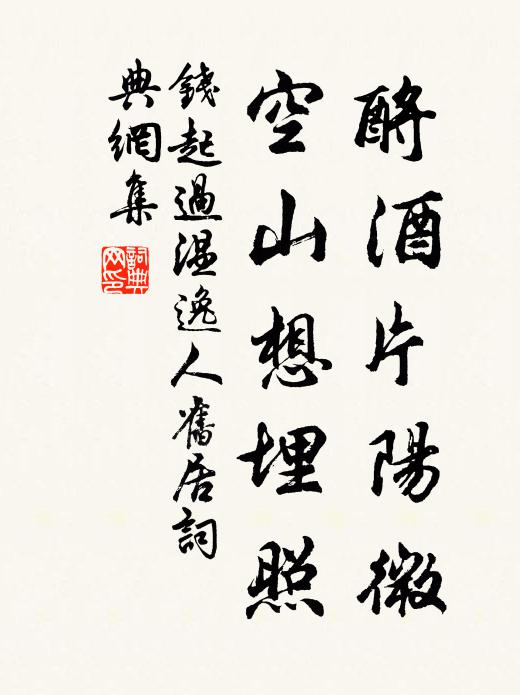 酹酒片陽微
空山想埋照
錢起過温逸人舊居詞
典網集
詞典
网印